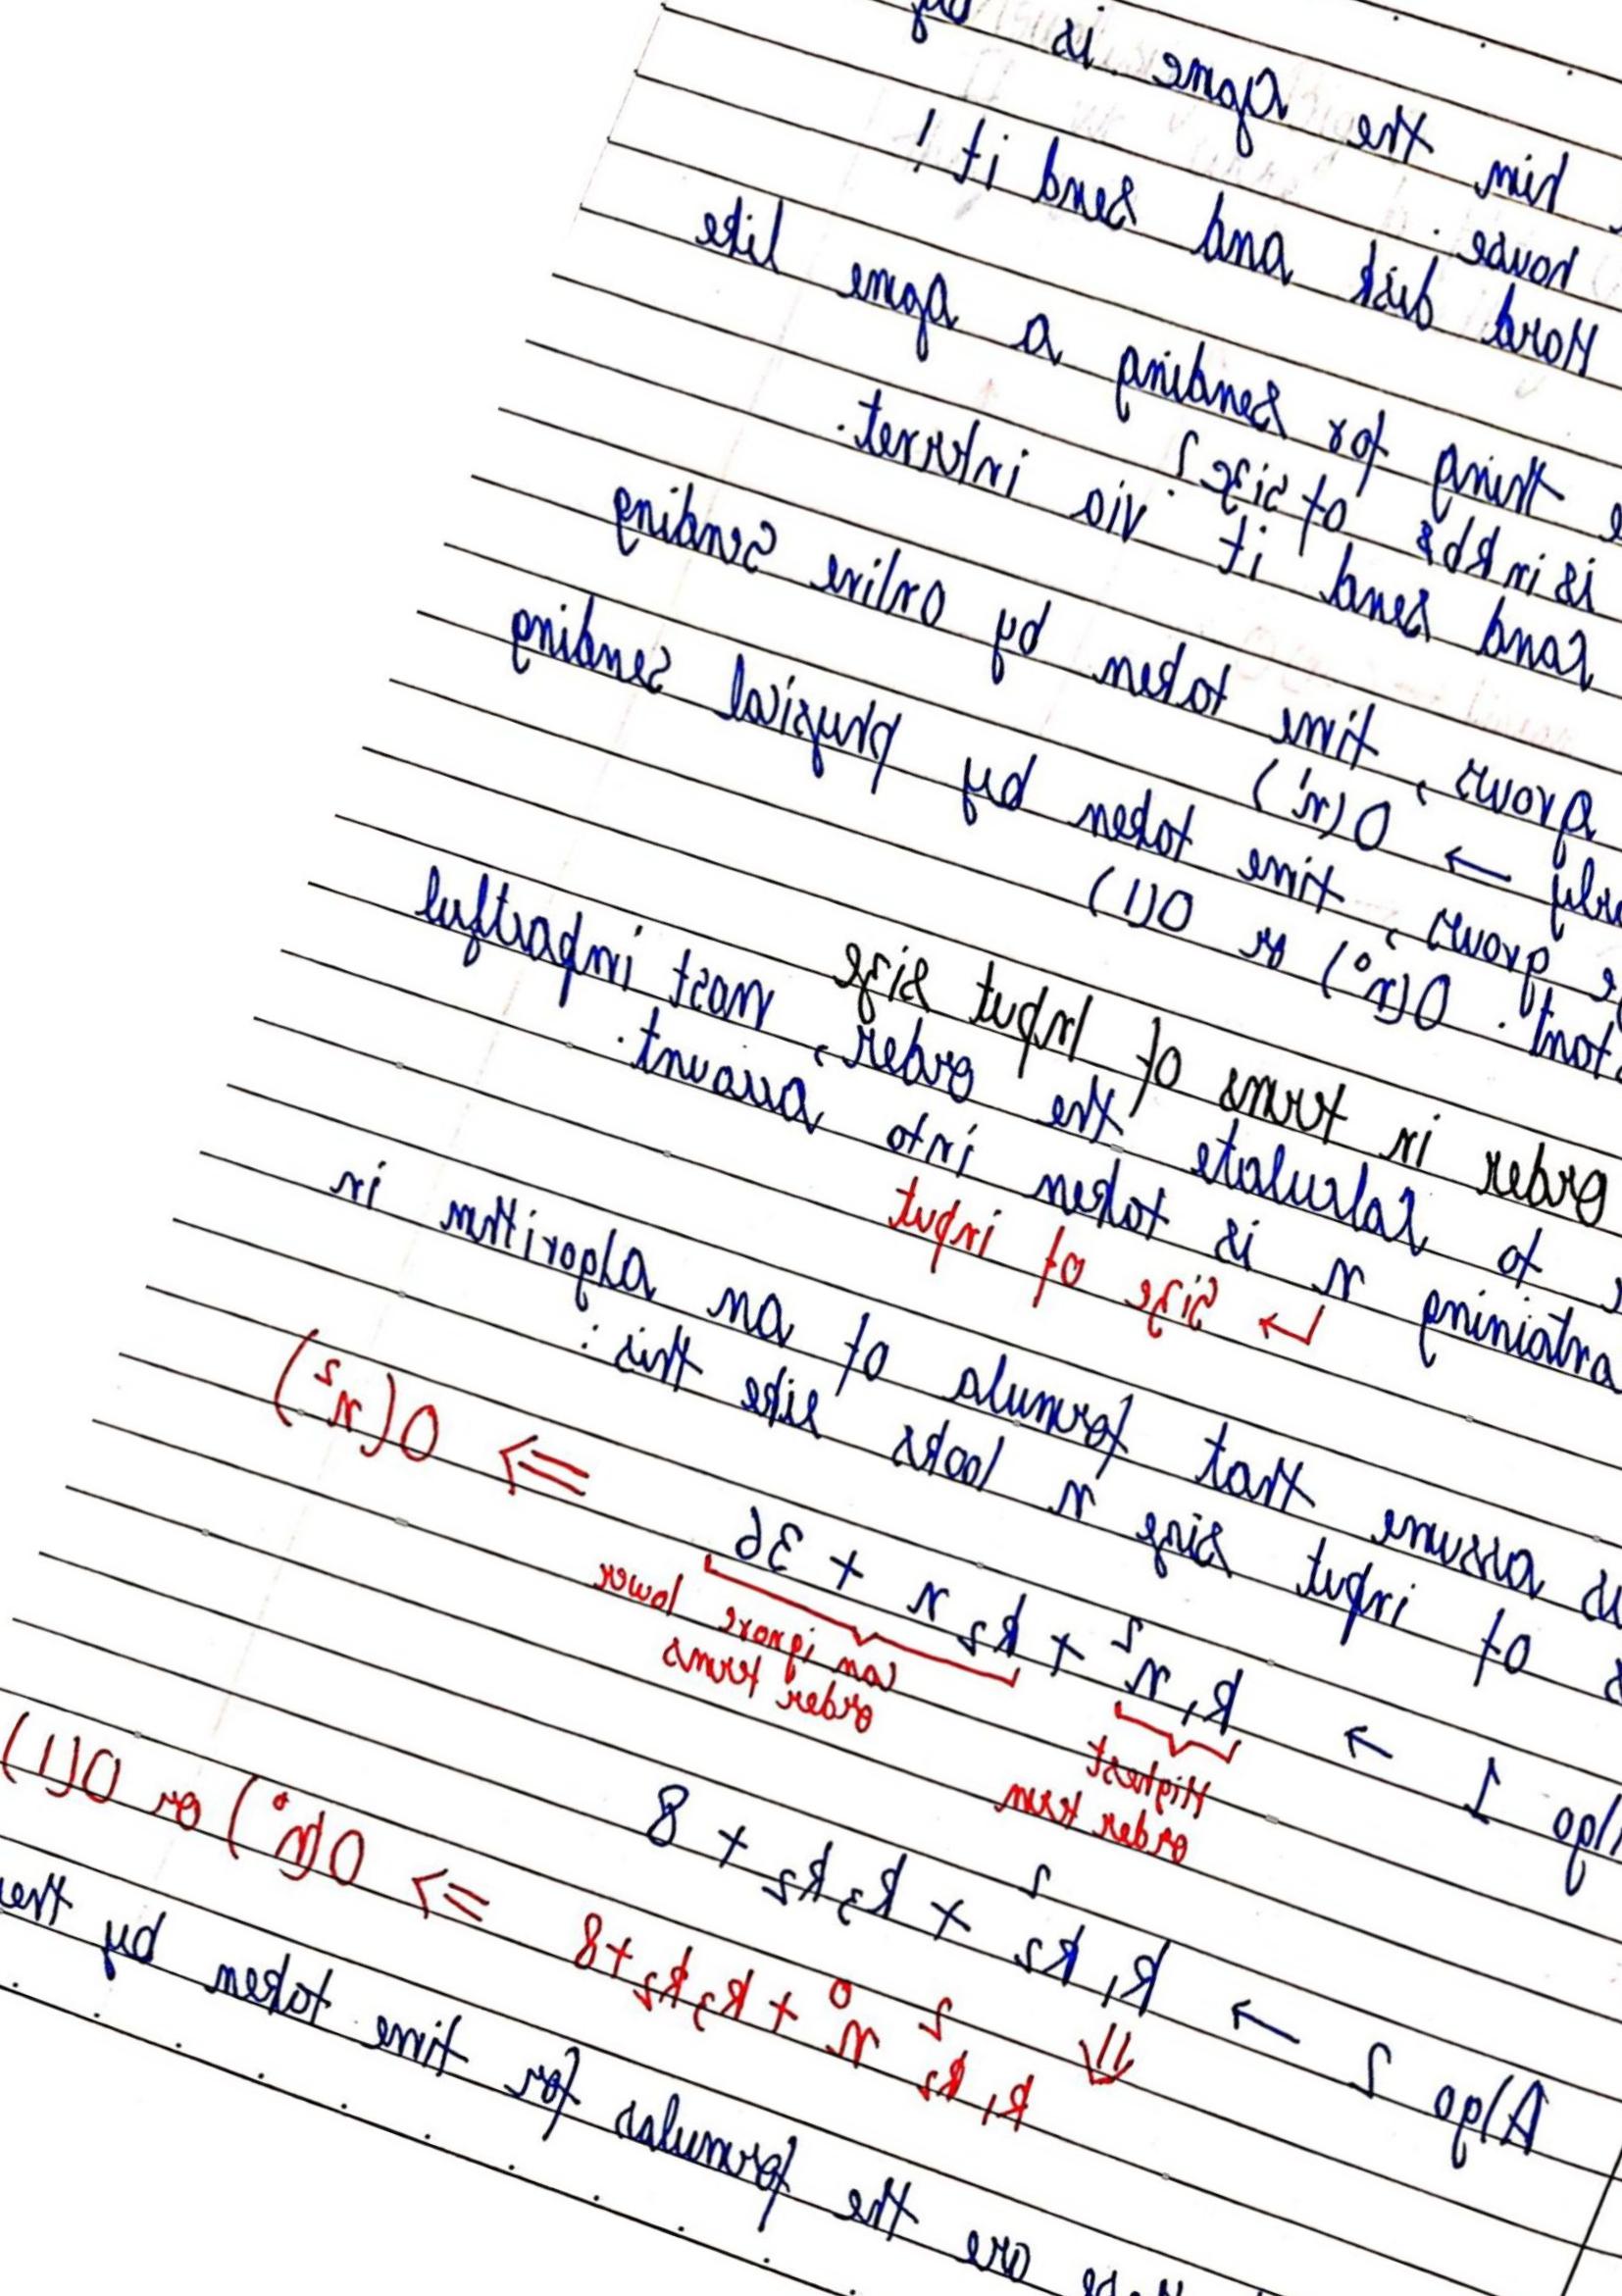 him the game is by
house.
Hard disk and send it!
thing for sending a game like
is in kbs of size?
and send it via internet.
grows, time taken by Online Sending
→ O(n')
grows, time taken by physical sending
O(n°) or O(1)
order in terms of Input size
to calculate the order, most impactful
n is taken into account.
↳ Size of input
assume that formula of an algorithm in
of input size n looks like this:
Algo 1 → k₁n² + k₂n + 36 => O(n²)
Highest order term
can ignore lower order terms
Algo 2 → k₁k₂² + k₃k₂ + 8
⇓
k₁k₂²n⁰ + k₃k₂+8 => O(n°) or O(1)
are the formulas for time taken by